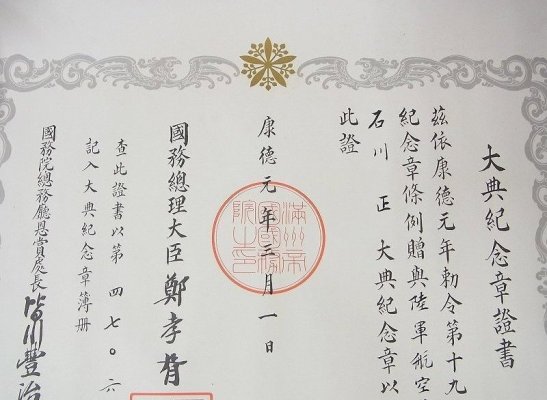 大典紀念章證書
茲依康德元年勅令第十九
紀念章條例贈與陸軍航空
石川 正 大典紀念章以
此證
康德元年三月一日
滿州帝國國務院之印
國務總理大臣 鄭孝胥
查此證書以第四七〇六
記入大典紀念章簿册
國務院總務廳恩賞處長 皆川豐治